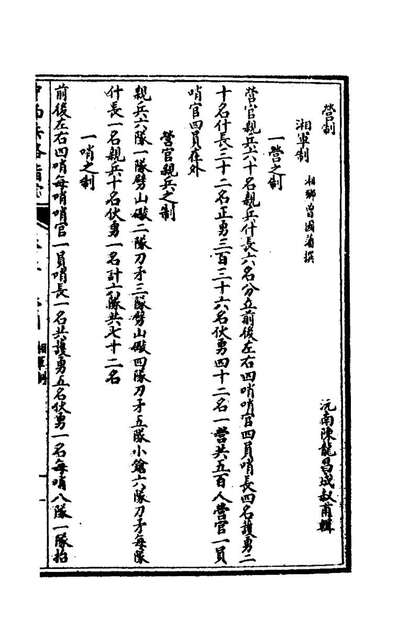 沅南陳龍昌成叔甫輯
營制
湘軍制　湘鄉曾國藩撰
一營之制
營官親兵六十名親兵什長六名分立前後左右四哨哨官四員哨長四名護勇二
十名什長三十二名正勇三百三十六名伙勇四十二名一營共五百人營官一員
哨官四員在外
營官親兵之制
親兵六隊一隊劈山礮二隊刀矛三隊劈山礮四隊刀矛五隊小鎗六隊刀矛每隊
什長一名親兵十名伙勇一名計六隊共七十二名
一哨之制
前後左右四哨每哨哨官一員哨長一名共護勇五名伙勇一名每哨八隊一隊抬
湘軍制